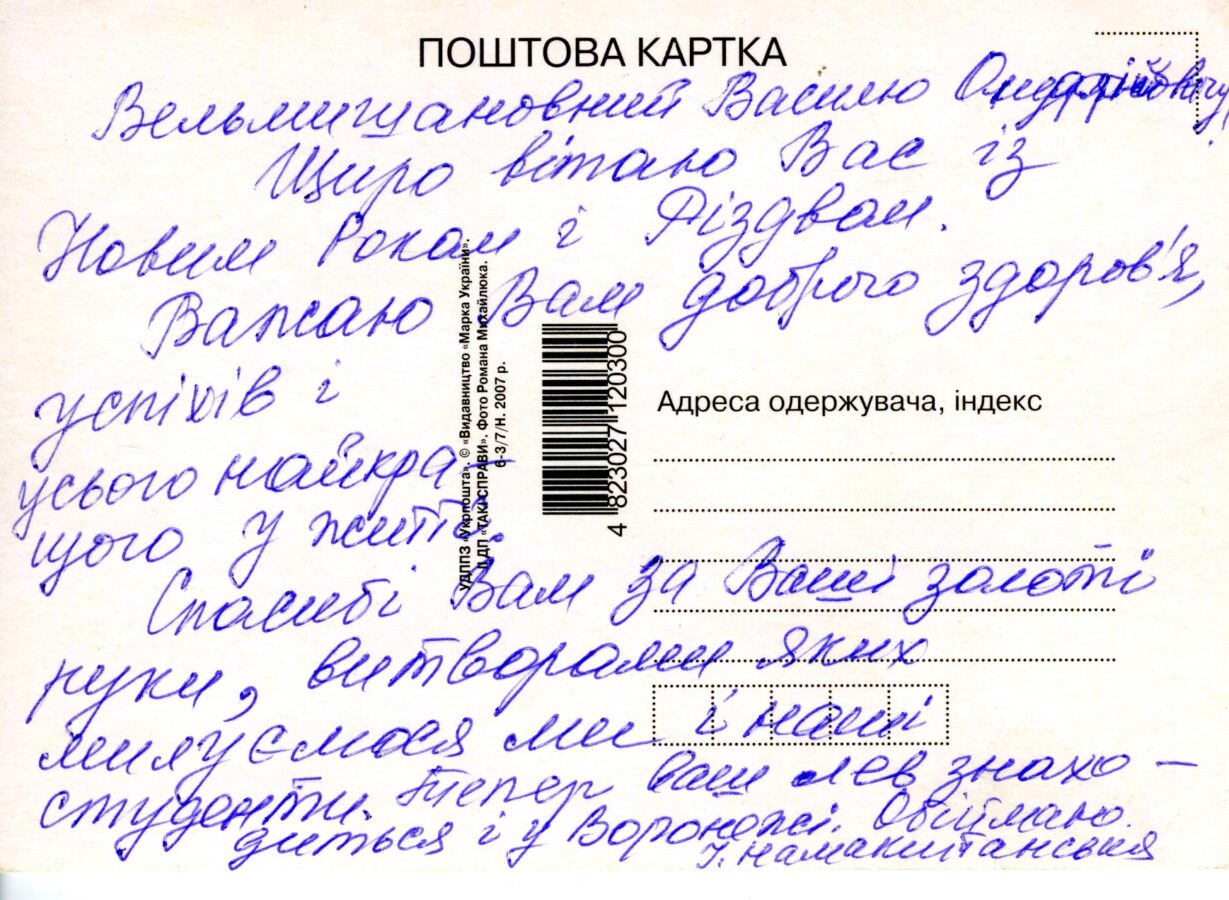 ПОШТОВА КАРТКА
Вельмишановний Василю
Щиро вітаю Вас із
Новим Роком і Різдвом.
Бажаю Вам доброго здоров'я,
успіхів і
усього найкра-
щого у житті.
Спасибі Вам за Ваші золоті
руки, витворами яких
милуємося ми і наші
студенти. Тепер Ваш лев знахо-
диться і у Воронежі. Обіймаю.
УДППЗ «Укрпошта». © «Видавництво «Марка України».
ДП «ТАКІ СПРАВИ». Фото Романа Михайлюка.
6-3/7/Н. 2007 р.
4 823027 120300
Адреса одержувача, індекс